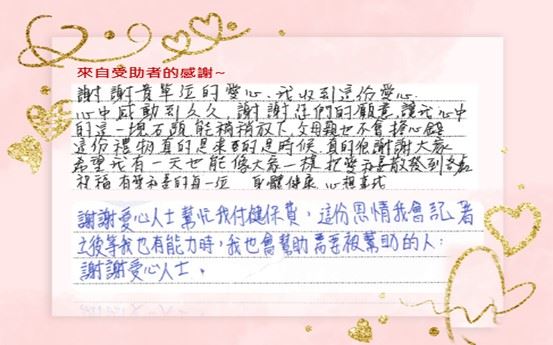 來自受助者的感謝~
謝謝貴單位的愛心、我收到這份愛心
心中感動到久久,謝謝您們的願意,讓我心中
的這一塊石頭能稍稍放下,父母親也不會擔心錢
這份禮物真的是來的是時候,真的很謝謝大家
希望我有一天也能像大家一樣把愛與善散發到
祝福有愛與善的每一位 身體健康 心想事成
謝謝愛心人士幫忙我付健保費,這份恩情我會記著
之後等我也有能力時,我也會幫助需要被幫助的人.
謝謝愛心人士。